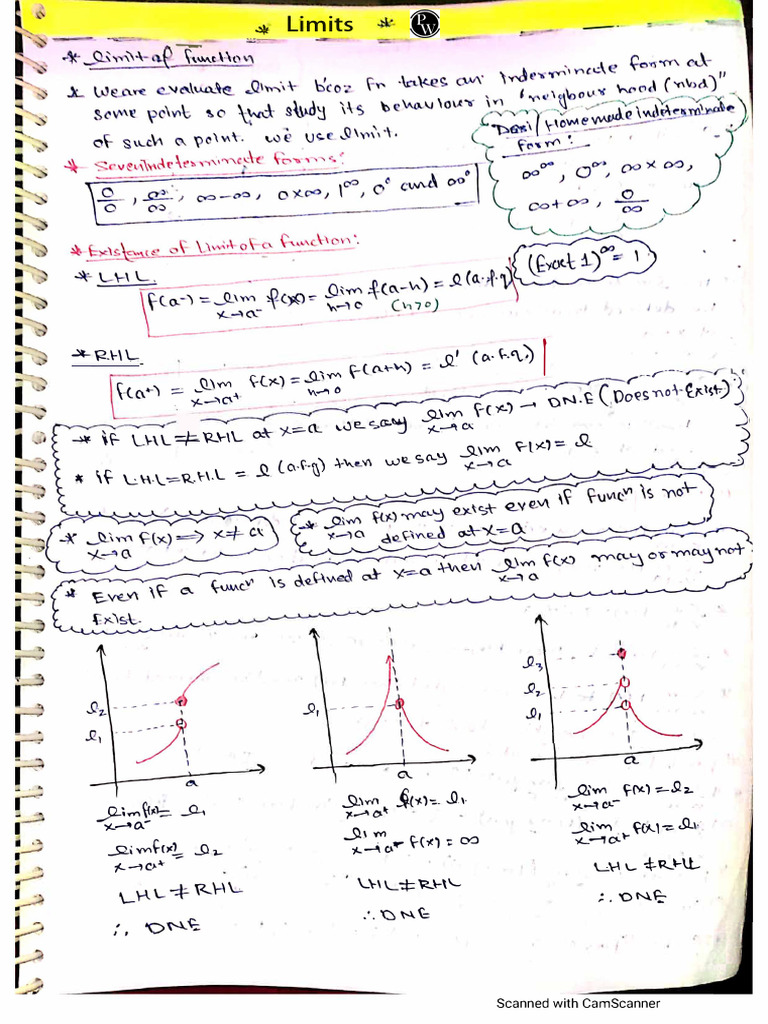 * Limits * PW
* Limit of Function
* We are evaluate limit b'coz Fn takes an Inderminate form at
some point so that study its behaviour in "neigbour hood (nbd)"
of such a point. we use limit.
Desi/Homemade indeterminate
Form:
∞^∞, 0^∞, ∞×∞,
∞+∞, 0/∞
* Seven Indeterminate forms:
0/0, ∞/∞, ∞-∞, 0×∞, 1^∞, 0^0 and ∞^0
* Existance of Limit of a Function:
(Exact 1)^∞ = 1
* LHL
f(a-) = lim x→a- f(x) = lim h→0 f(a-h) = l (a.f.q)
(h>0)
* RHL
f(a+) = lim x→a+ f(x) = lim h→0 f(a+h) = l' (a.f.q.)
* if LHL ≠ RHL at x=a we say lim x→a f(x) → D.N.E (Does not Exist)
* if L.H.L = R.H.L = l (a.f.q) then we say lim x→a f(x) = l
* lim x→a f(x) ⇒ x≠a
* lim x→a f(x) may exist even if funcn is not
defined at x=a
* Even if a funcn is defined at x=a then lim x→a f(x) may or may not
Exist.
l2
l1
a
l1
a
l3
l2
l1
a
lim x→a- f(x) = l1
lim x→a+ f(x) = l2
LHL ≠ RHL
∴ DNE
lim x→a+ f(x) = l1
lim x→a- f(x) = ∞
LHL ≠ RHL
∴ DNE
lim x→a- f(x) = l2
lim x→a+ f(x) = l1
LHL ≠ RHL
∴ DNE
Scanned with CamScanner